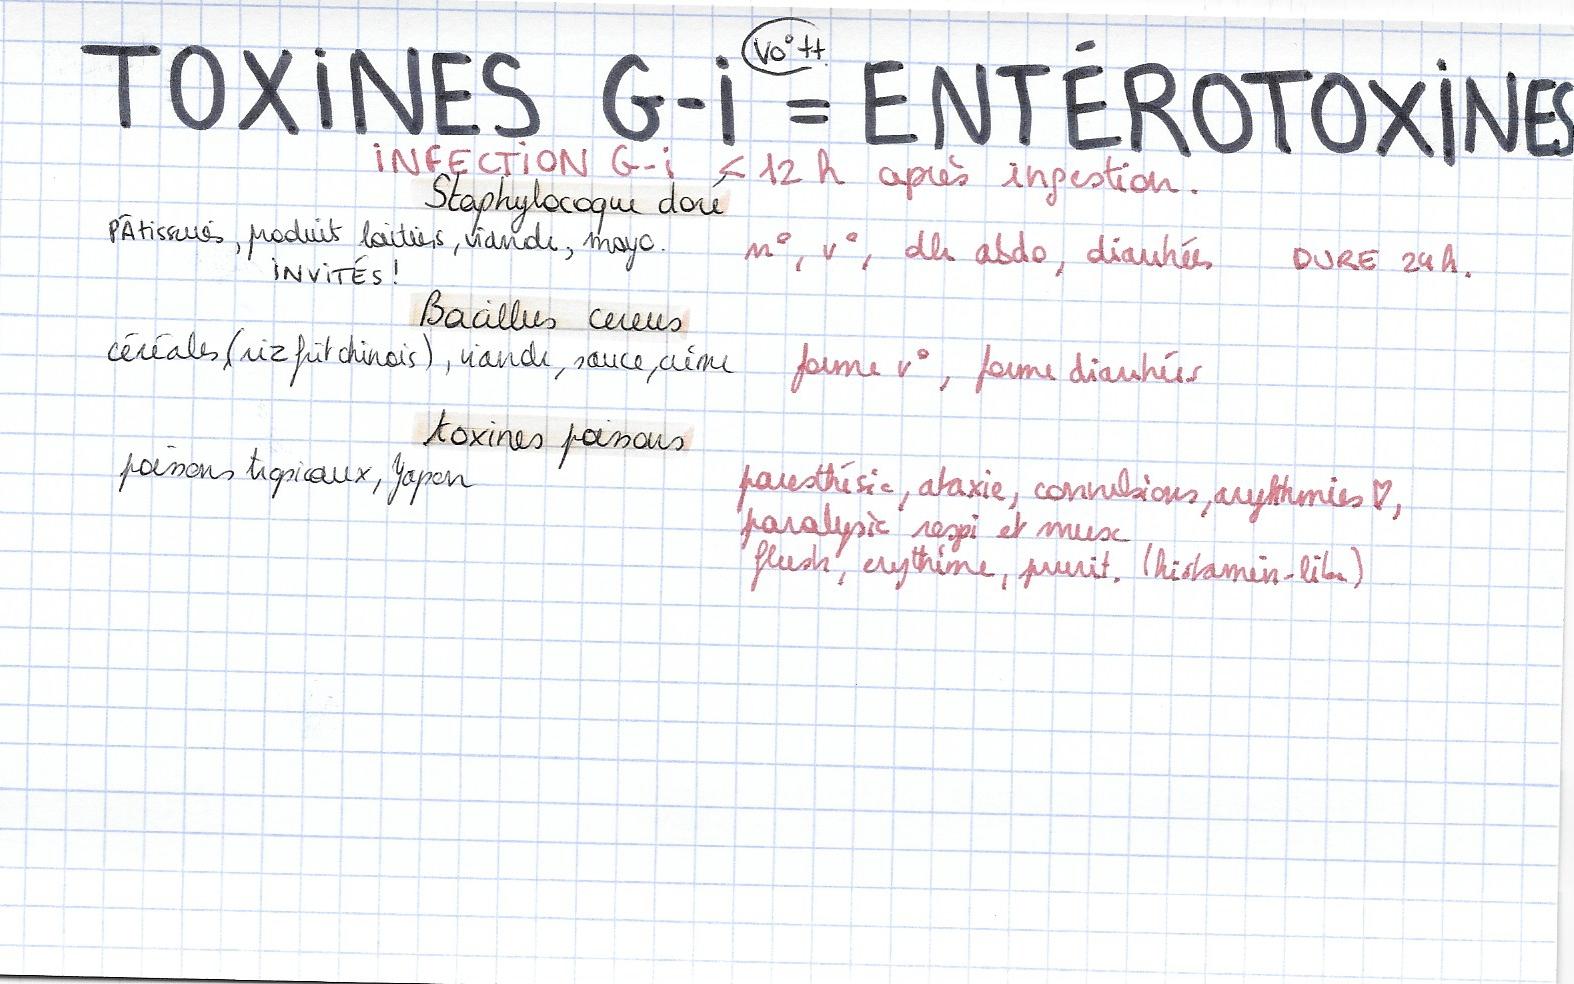 TOXINES G-i = ENTÉROTOXINES
Vo° tt
INFECTION G-i < 12 h après ingestion.
Staphylocoque doré
PÂtisseries, produit laitiers, viande, mayo.
INVITÉS!
n°, v°, dlr abdo, diarrhées DURE 24 h.
Bacillus cereus
céréales (riz frit chinois), viande, sauce, crème
forme v°, forme diarrhées
toxines poissons
poissons tropicaux, Japon
paresthésie, ataxie, convulsions, arythmies ♡,
paralysie respi et musc
flush, erythème, prurit. (histamin-like)